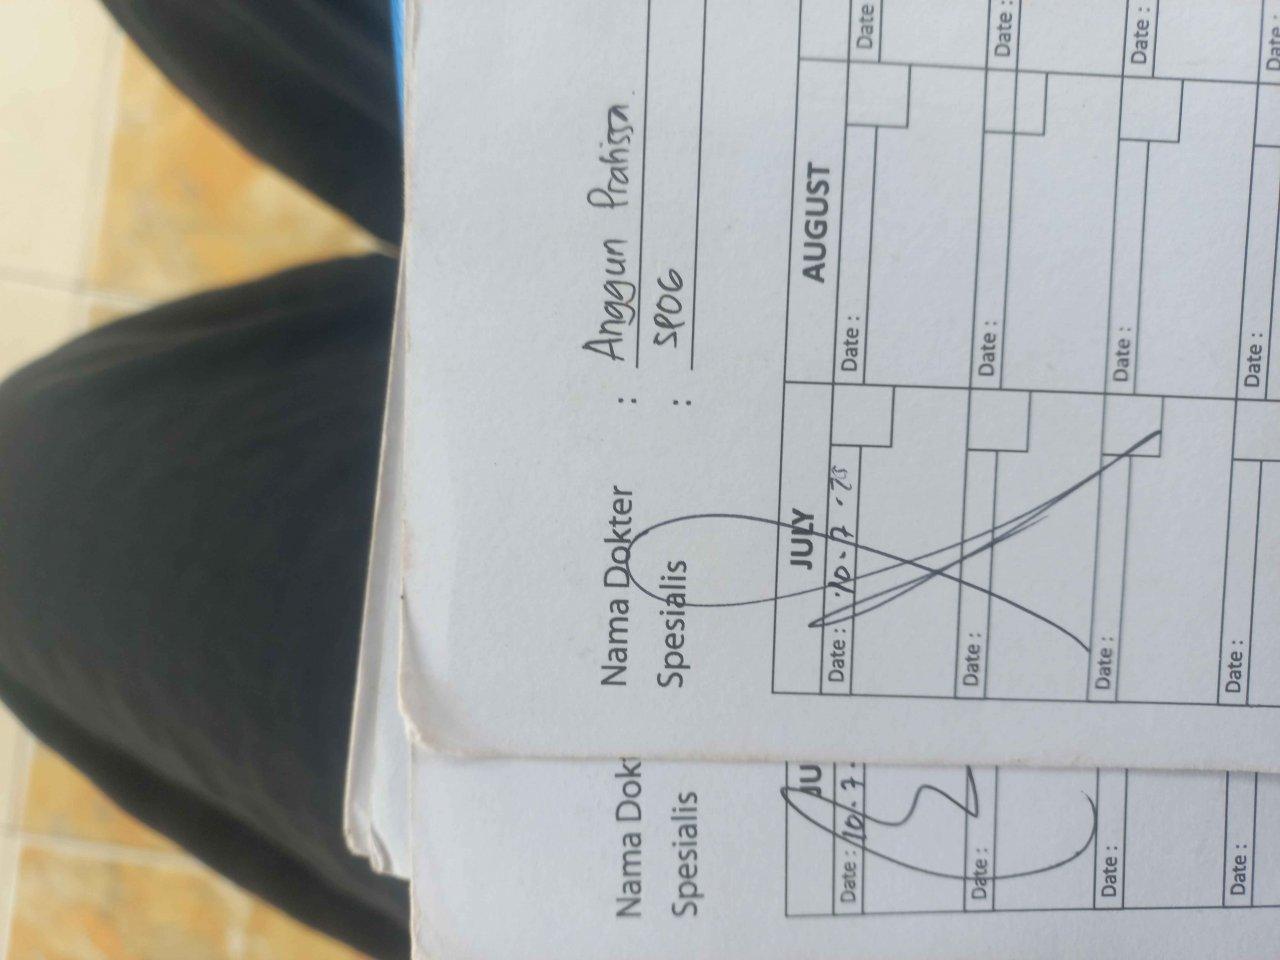 Nama Dokter : Anggun Prahissa.
Spesialis : SPOG
JULY AUGUST
Date : 10.7.25 Date : Date :
Date : Date : Date :
Date : Date : Date :
Date : Date : Date :
Nama Dok
Spesialis
JU
Date : 10.7.
Date :
Date :
Date :